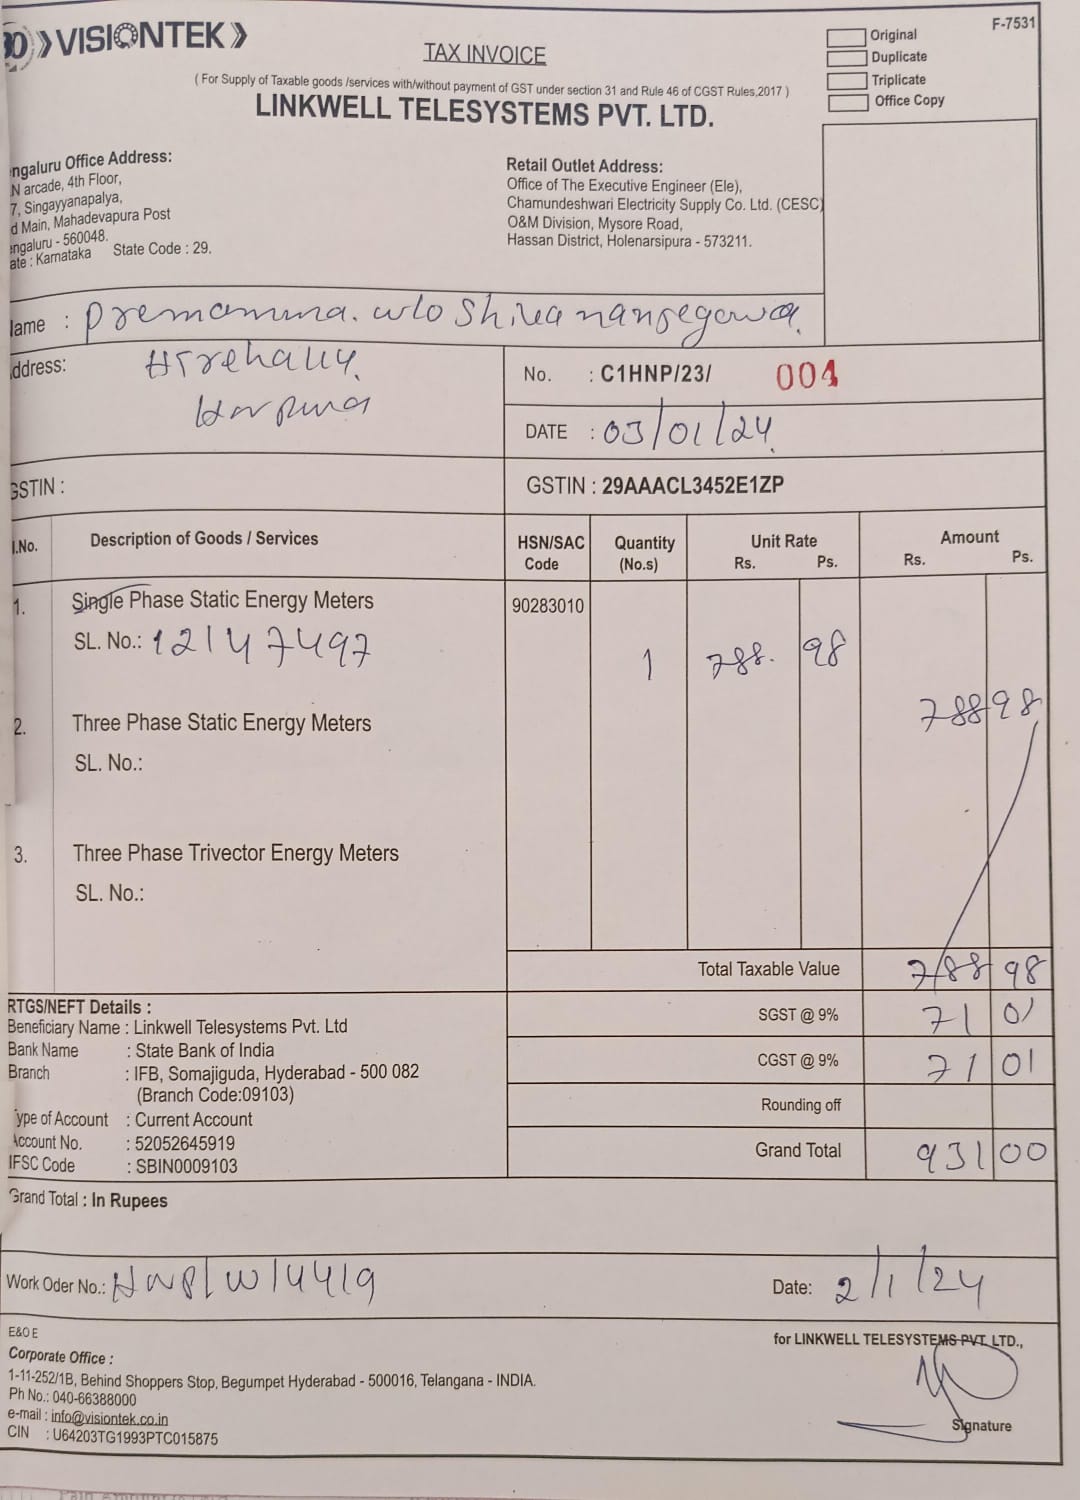 VISIONTEK
F-7531
TAX INVOICE
Original
Duplicate
Triplicate
Office Copy
( For Supply of Taxable goods /services with/without payment of GST under section 31 and Rule 46 of CGST Rules,2017 )
LINKWELL TELESYSTEMS PVT. LTD.
ngaluru Office Address:
N arcade, 4th Floor,
7, Singayyanapalya,
d Main, Mahadevapura Post
ngaluru - 560048.
ate : Karnataka State Code : 29.
Retail Outlet Address:
Office of The Executive Engineer (Ele),
Chamundeshwari Electricity Supply Co. Ltd. (CESC)
O&M Division, Mysore Road,
Hassan District, Holenarsipura - 573211.
ame : Premamma. w/o Shivananjegowda.
ddress: Hirehally.
No. : C1HNP/23/ 004
DATE : 03/01/24
GSTIN :
GSTIN : 29AAACL3452E1ZP
l.No. Description of Goods / Services HSN/SAC Code Quantity (No.s) Unit Rate Rs. Ps. Amount Rs. Ps.
1. Single Phase Static Energy Meters 90283010
SL. No.: 12147497 1 788. 98
788 98
2. Three Phase Static Energy Meters
SL. No.:
3. Three Phase Trivector Energy Meters
SL. No.:
Total Taxable Value 788 98
SGST @ 9% 71 01
CGST @ 9% 71 01
Rounding off
Grand Total 931 00
RTGS/NEFT Details :
Beneficiary Name : Linkwell Telesystems Pvt. Ltd
Bank Name : State Bank of India
Branch : IFB, Somajiguda, Hyderabad - 500 082
(Branch Code:09103)
ype of Account : Current Account
Account No. : 52052645919
IFSC Code : SBIN0009103
Grand Total : In Rupees
Work Oder No.: HNP/W/4419 Date: 2/1/24
E&O E
for LINKWELL TELESYSTEMS PVT. LTD.,
Corporate Office :
1-11-252/1B, Behind Shoppers Stop, Begumpet Hyderabad - 500016, Telangana - INDIA.
Ph No.: 040-66388000
e-mail : info@visiontek.co.in
CIN : U64203TG1993PTC015875
Signature